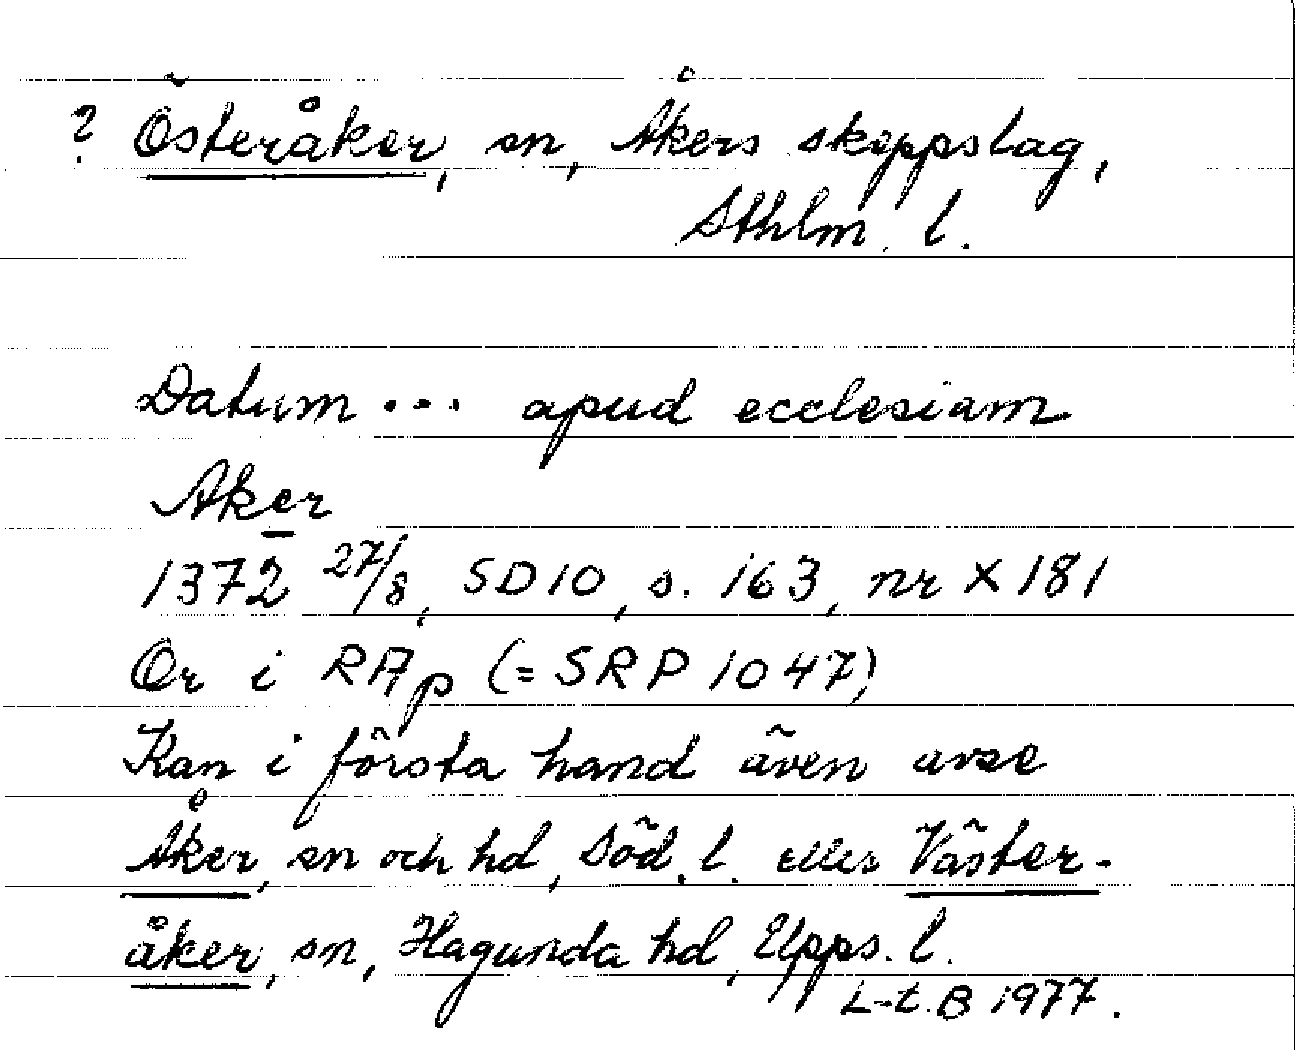 ? Österåker, sn, Åkers skeppslag,
Sthlm. l.
Datum ... apud ecclesiam
Aker
1372 27/8, SD10, s. 163, nr X 181
Or i RAp (= SRP 1047)
Kan i första hand även avse
Åker, sn och hd, Söd. l. eller Väster-
åker, sn, Hagunda hd, Upps. l.
L-t.B 1977.